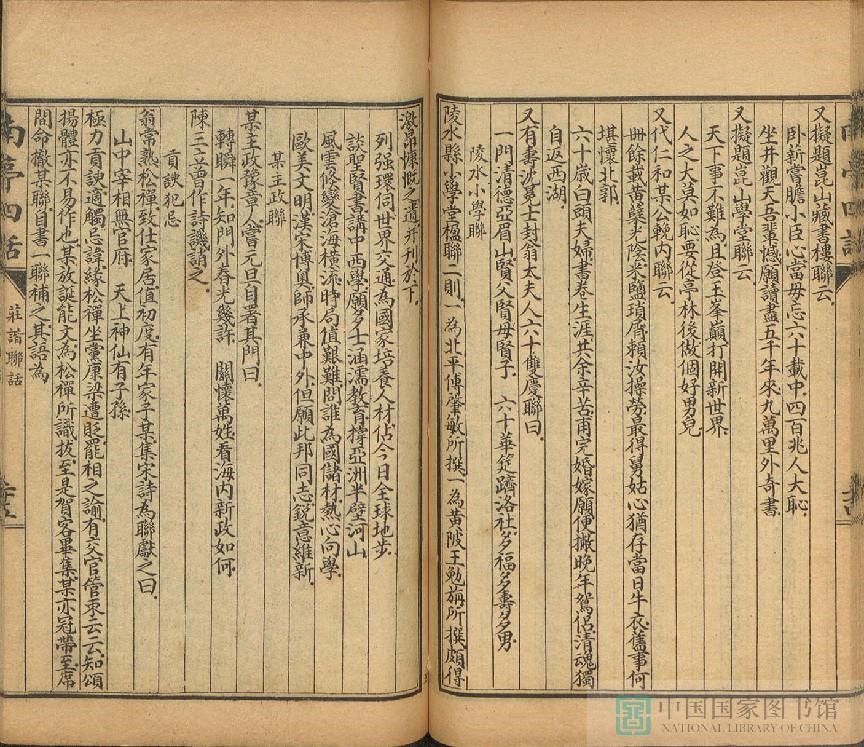 又擬題崑山藏書樓聯云
臥薪嘗膽小臣心當毋忘六十載中四百兆人大恥
坐井觀天吾輩憾願讀盡五千年來九萬里外奇書
又擬題崑山學堂聯云
天下事不難為且登玉峯巔打開新世界
人之大莫如恥要從亭林後做個好男兒
又代仁和某公輓內聯云
卌餘載黃虀光陰米鹽瑣屑賴汝操勞最得舅姑心猶存當日牛衣舊事何
堪懷北郭
六十歲白頭夫婦書卷生涯共余辛苦甫完婚嫁願便撇晚年鴛侶清魂獨
自返西湖
又有壽波冕士封翁太夫人六十雙慶聯曰
一門清德亞眉山賢父賢母賢子 六十華筵躋洛社多福多壽多男
陵水小學聯
陵水縣小學堂楹聯二則一為北平傅肇敏所撰一為黃陂王勉旃所撰頗得
激昂慷慨之遺并刊於下
列强環伺世界交通為國家培養人材佔今日全球地步
談聖賢書講中西學願多士涵濡教育撐亞洲半壁河山
風雲倏變滄海橫流時局值艱難問誰為國儲材熱心向學
歐美文明漢宋博奧師承兼中外但願此邦同志銳意維新
某主政聯
某主政豫章人嘗元旦自署其門曰
轉瞬一年知門外春光幾許 關懷萬姓看海內新政如何
陳三立曾作詩譏誚之
貢諛犯忌
翁常熟松禪致仕家居值初度有年家子某集宋詩為聯獻之曰
山中宰相無官府 天上神仙有子孫
極力貢諛適觸忌諱緣松禪坐黨康梁遭貶罷相之諭有交官管束云云知頌
揚體亦不易作也某放誕能文為松禪所識拔至是賀客畢集某亦冠帶至席
間命撤某聯自書一聯補之其語為
南亭四話
莊諧聯話
中国国家图书馆
NATIONAL LIBRARY OF CHINA